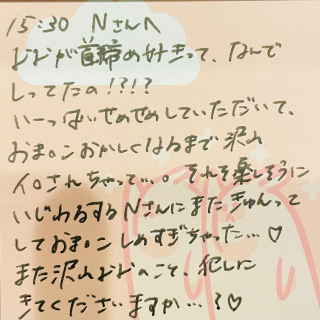 15:30 Nさんへ
ななが首締め好きって、なんで
しってたの!?!?
いーっぱいせめせめしていただいて、
おま○ンおかしくなるまで沢山
イ○されちゃって…。それを楽しそうに
いじわるするNさんにまたきゅんって
しておま○ンしめすぎちゃった…♡
また沢山ななのこと、犯しに
きてくださいますか…?♡